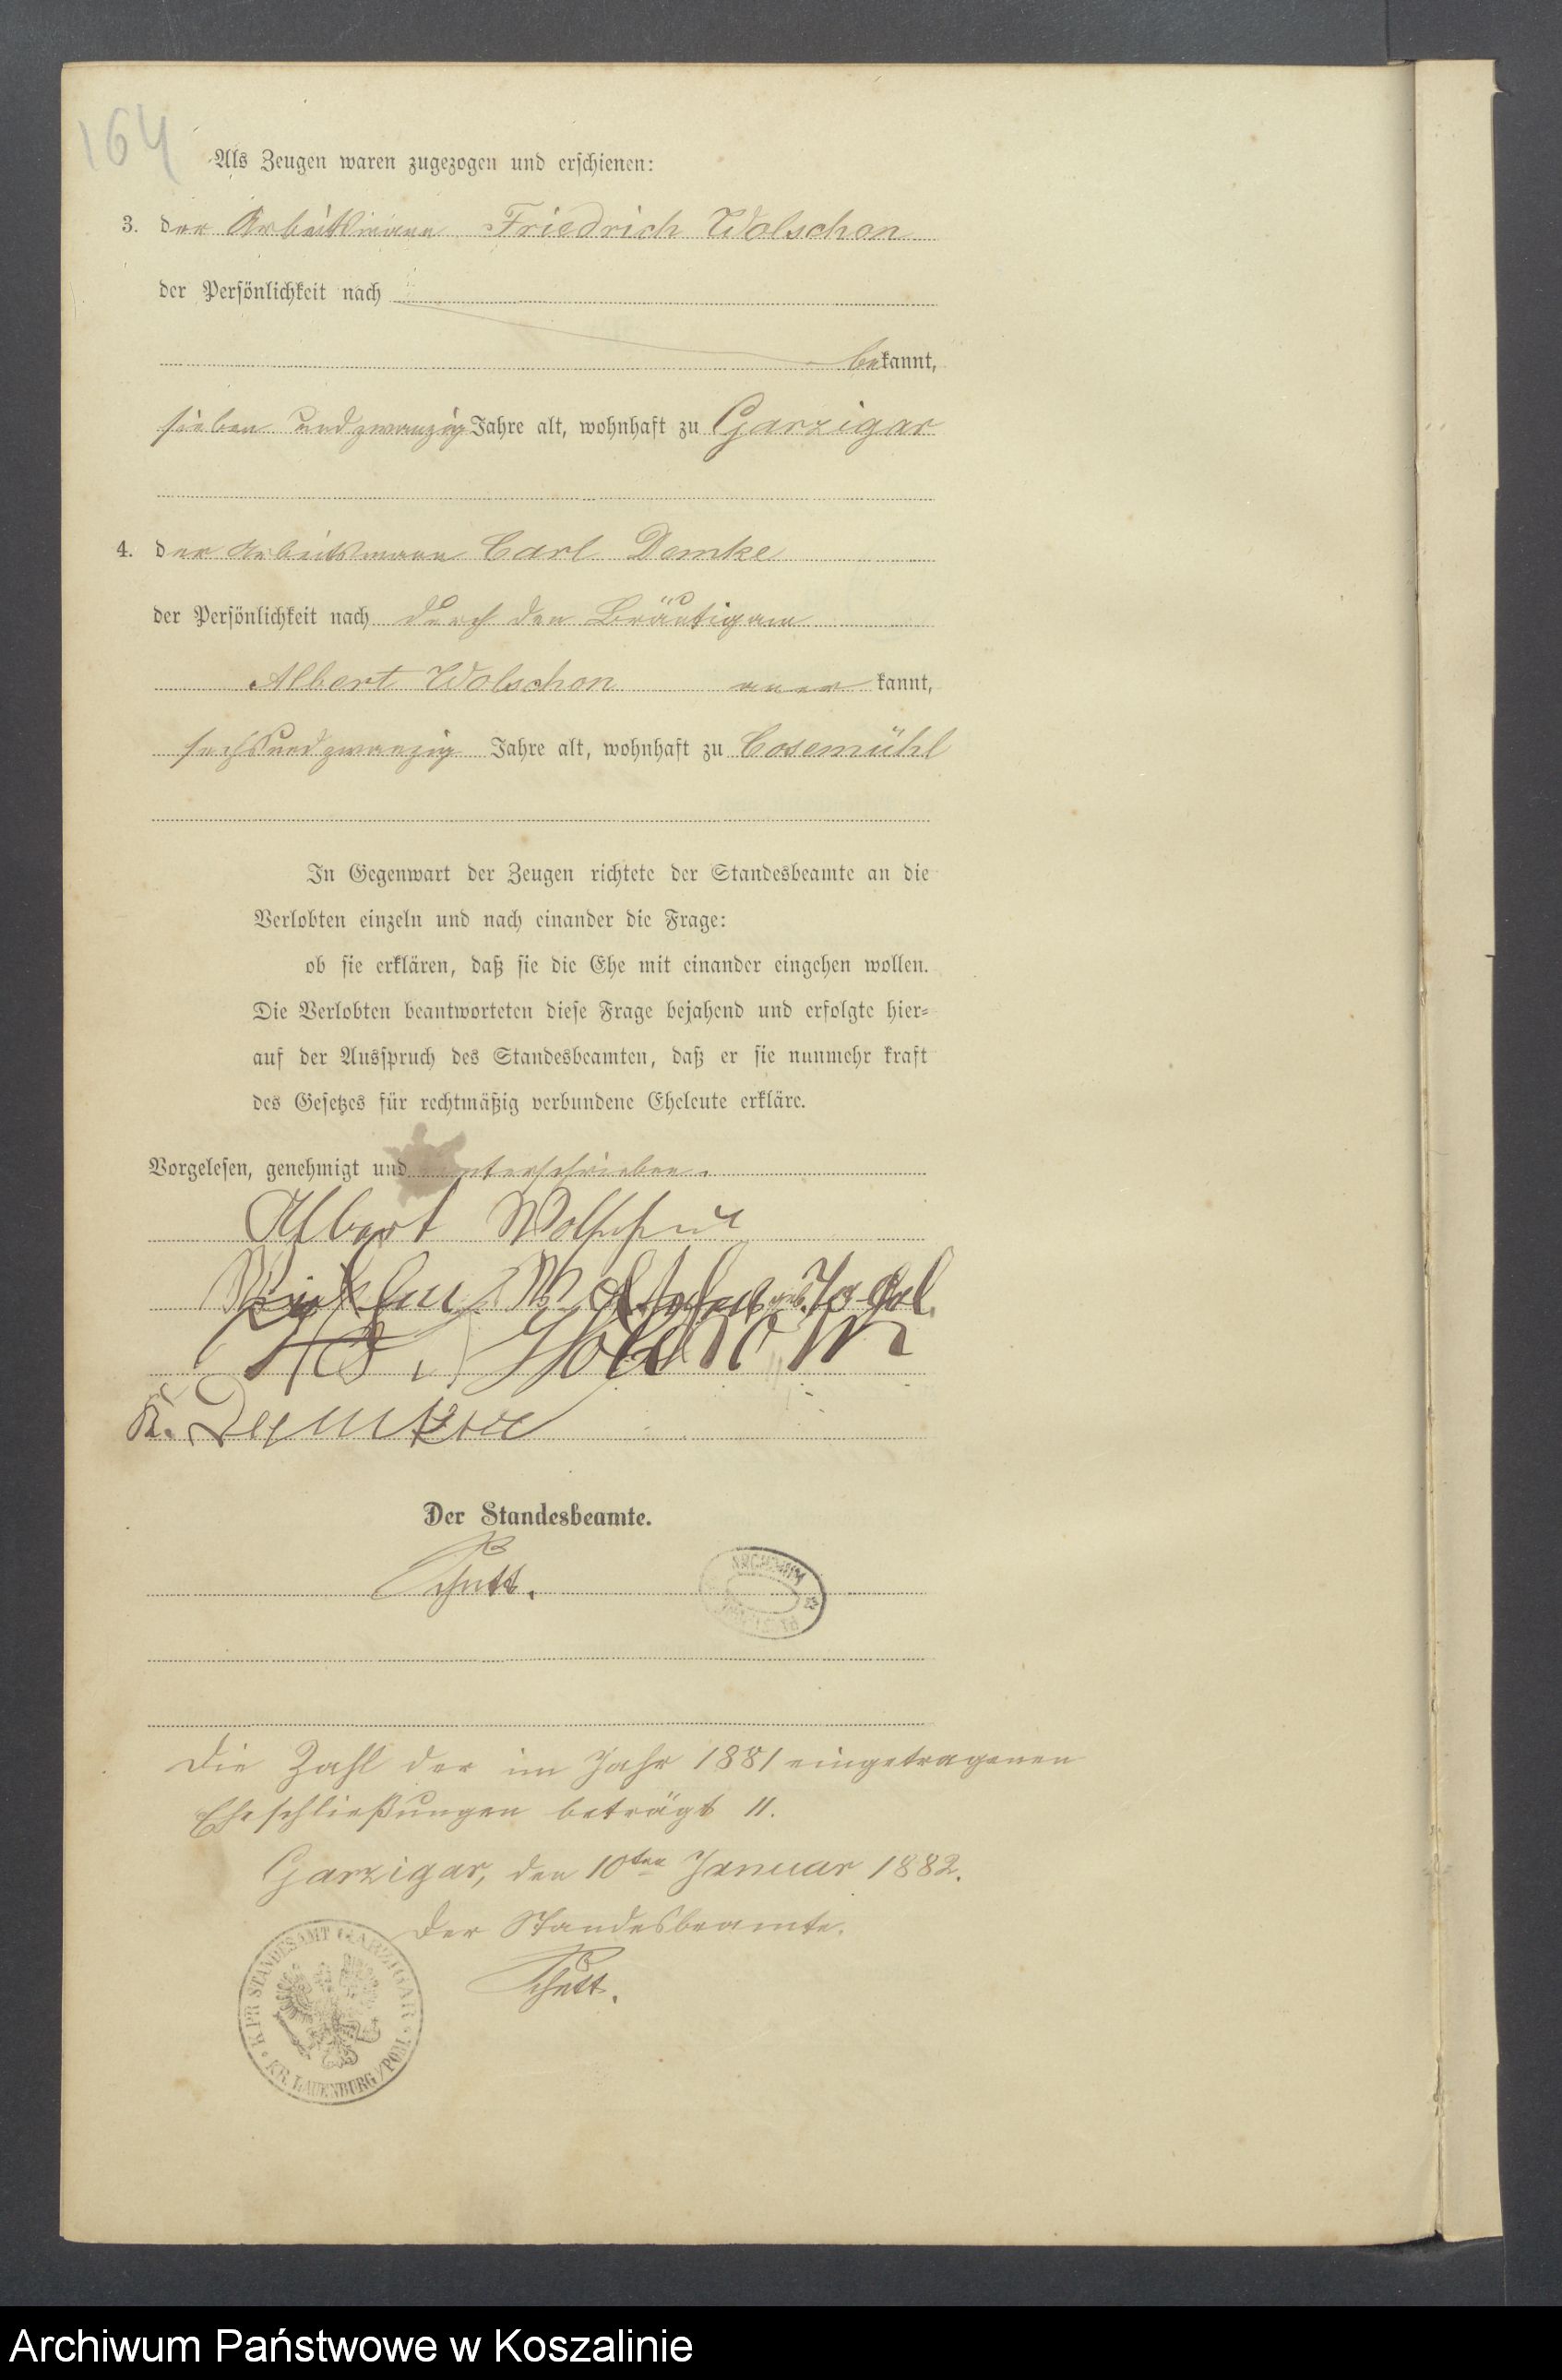 164
Als Zeugen waren zugezogen und erschienen:
3. der Arbeitsmann Friedrich Wolschon
der Persönlichkeit nach
bekannt,
sieben und zwanzig Jahre alt, wohnhaft zu Garzigar
4. der Arbeitsmann Carl Domke
der Persönlichkeit nach durch den Bräutigam
Albert Wolschon aner kannt,
sechsundzwanzig Jahre alt, wohnhaft zu Cosemühl
In Gegenwart der Zeugen richtete der Standesbeamte an die
Verlobten einzeln und nach einander die Frage:
ob sie erklären, daß sie die Ehe mit einander eingehen wollen.
Die Verlobten beantworteten diese Frage bejahend und erfolgte hier-
auf der Ausspruch des Standesbeamten, daß er sie nunmehr kraft
des Gesetzes für rechtmäßig verbundene Eheleute erkläre.
Vorgelesen, genehmigt und unterschrieben.
Albert Wolschon
geb.
K.
Der Standesbeamte.
Schutt.
ARCHIWUM
Die Zahl der im Jahr 1881 eingetragenen
Eheschließungen beträgt 11.
Garzigar, den 10ten Januar 1882.
Der Standesbeamte.
Schutt.
K. PR STANDESAMT GARZIGAR
KR. LAUENBURG /POM.
Archiwum Państwowe w Koszalinie